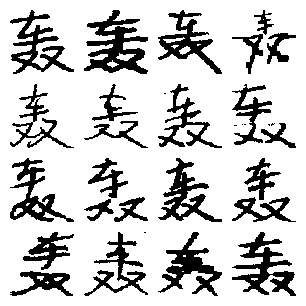 轰轰轰轰
轰轰轰轰
轰轰轰轰
轰轰轰轰